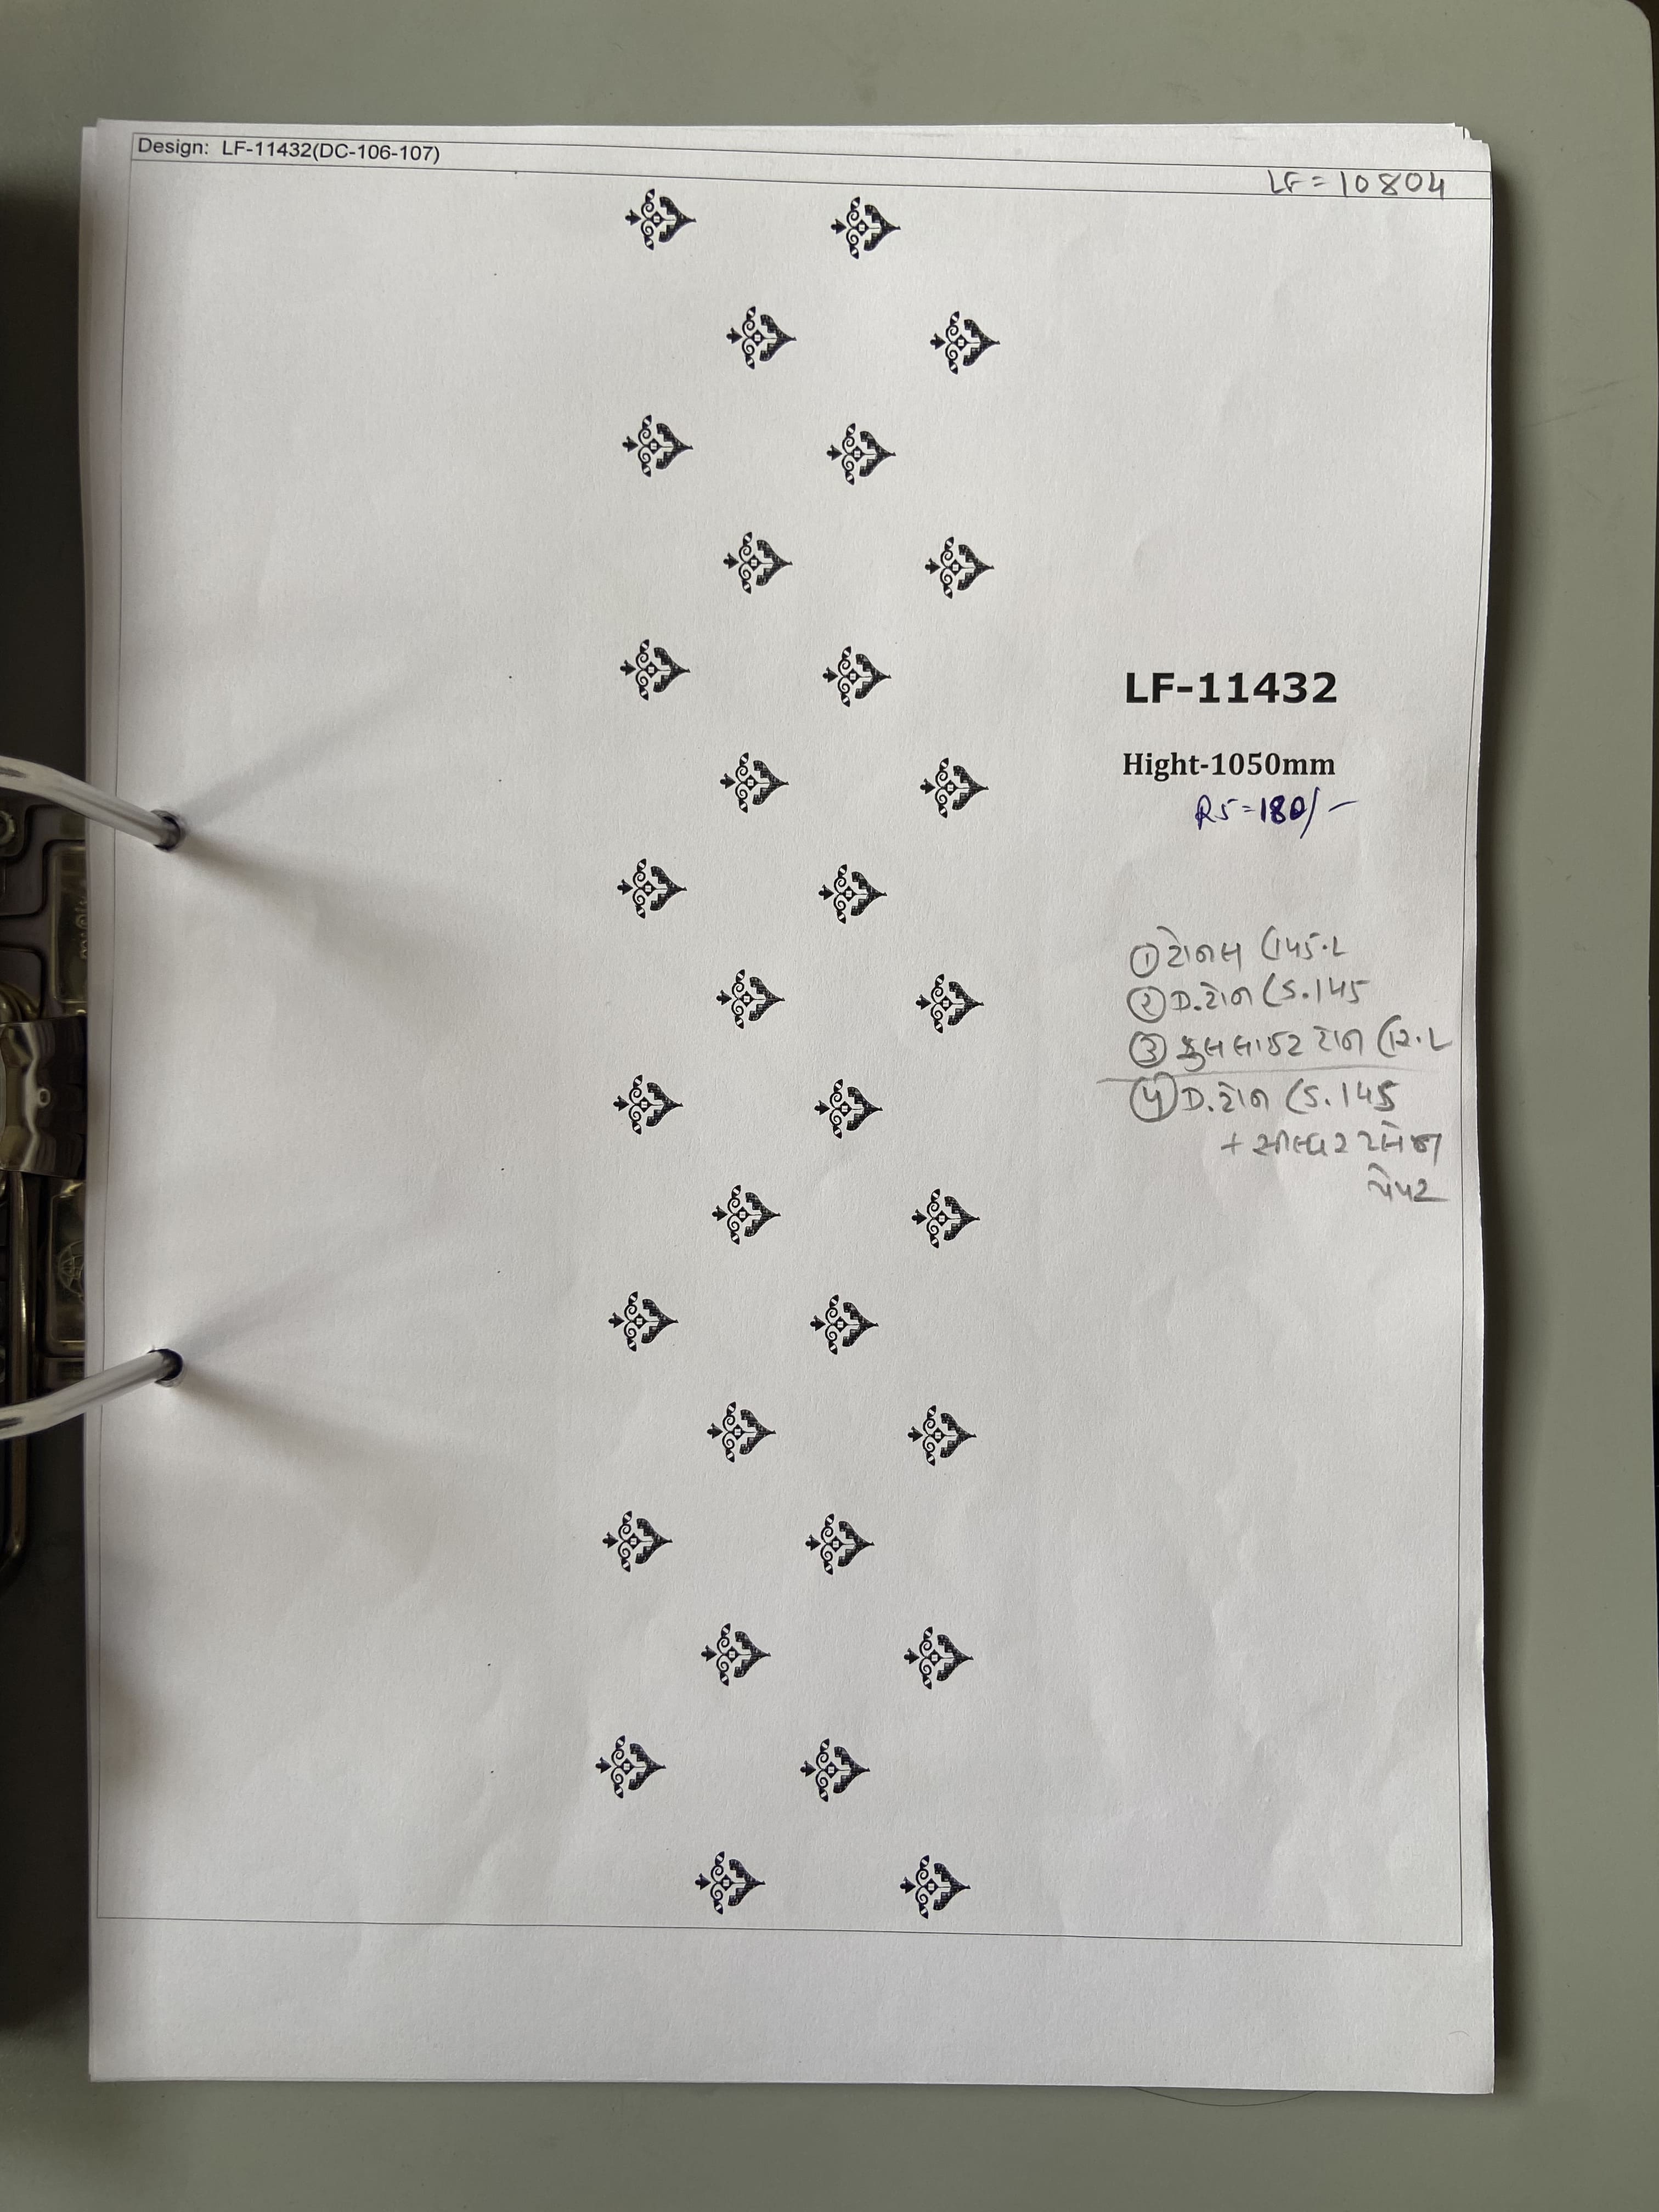 Design: LF-11432(DC-106-107)
LF = 10804
LF-11432
Hight-1050mm
RS=180/-
① ટોનલ (145.L
② D.ટોન (S.145
③ ફુલ લાઈટ ટોન (12.L
④ D.ટોન (S.145
+ સીલ્વર